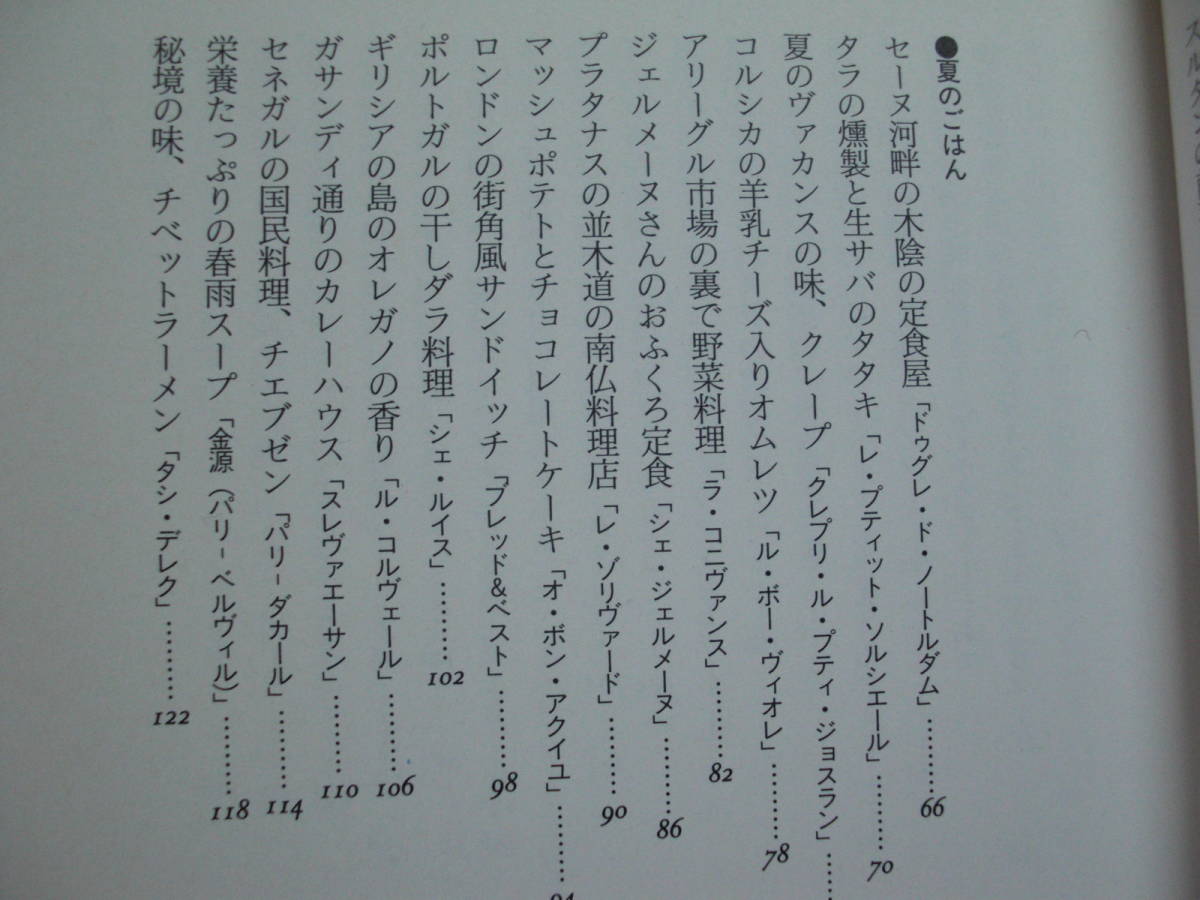 ●夏のごはん
セーヌ河畔の木陰の定食屋「ドゥグレ・ド・ノートルダム」…………66
タラの燻製と生サバのタタキ「レ・プティット・ソルシエール」…………70
夏のヴァカンスの味、クレープ「クレプリ・ル・プティ・ジョスラン」……
コルシカの羊乳チーズ入りオムレツ「ル・ボー・ヴィオレ」…………78
アリーグル市場の裏で野菜料理「ラ・コニヴァンス」…………82
ジェルメーヌさんのおふくろ定食「シェ・ジェルメーヌ」…………86
プラタナスの並木道の南仏料理店「レ・ゾリヴァード」…………90
マッシュポテトとチョコレートケーキ「オ・ボン・アクイユ」…………94
ロンドンの街角風サンドイッチ「ブレッド&ベスト」…………98
ポルトガルの干しダラ料理「シェ・ルイス」…………102
ギリシアの島のオレガノの香り「ル・コルヴェール」…………106
ガサンディ通りのカレーハウス「スレヴァエーサン」…………110
セネガルの国民料理、チエブゼン「パリ-ダカール」…………114
栄養たっぷりの春雨スープ「金源(パリ-ベルヴィル)」…………118
秘境の味、チベットラーメン「タシ・デレク」…………122